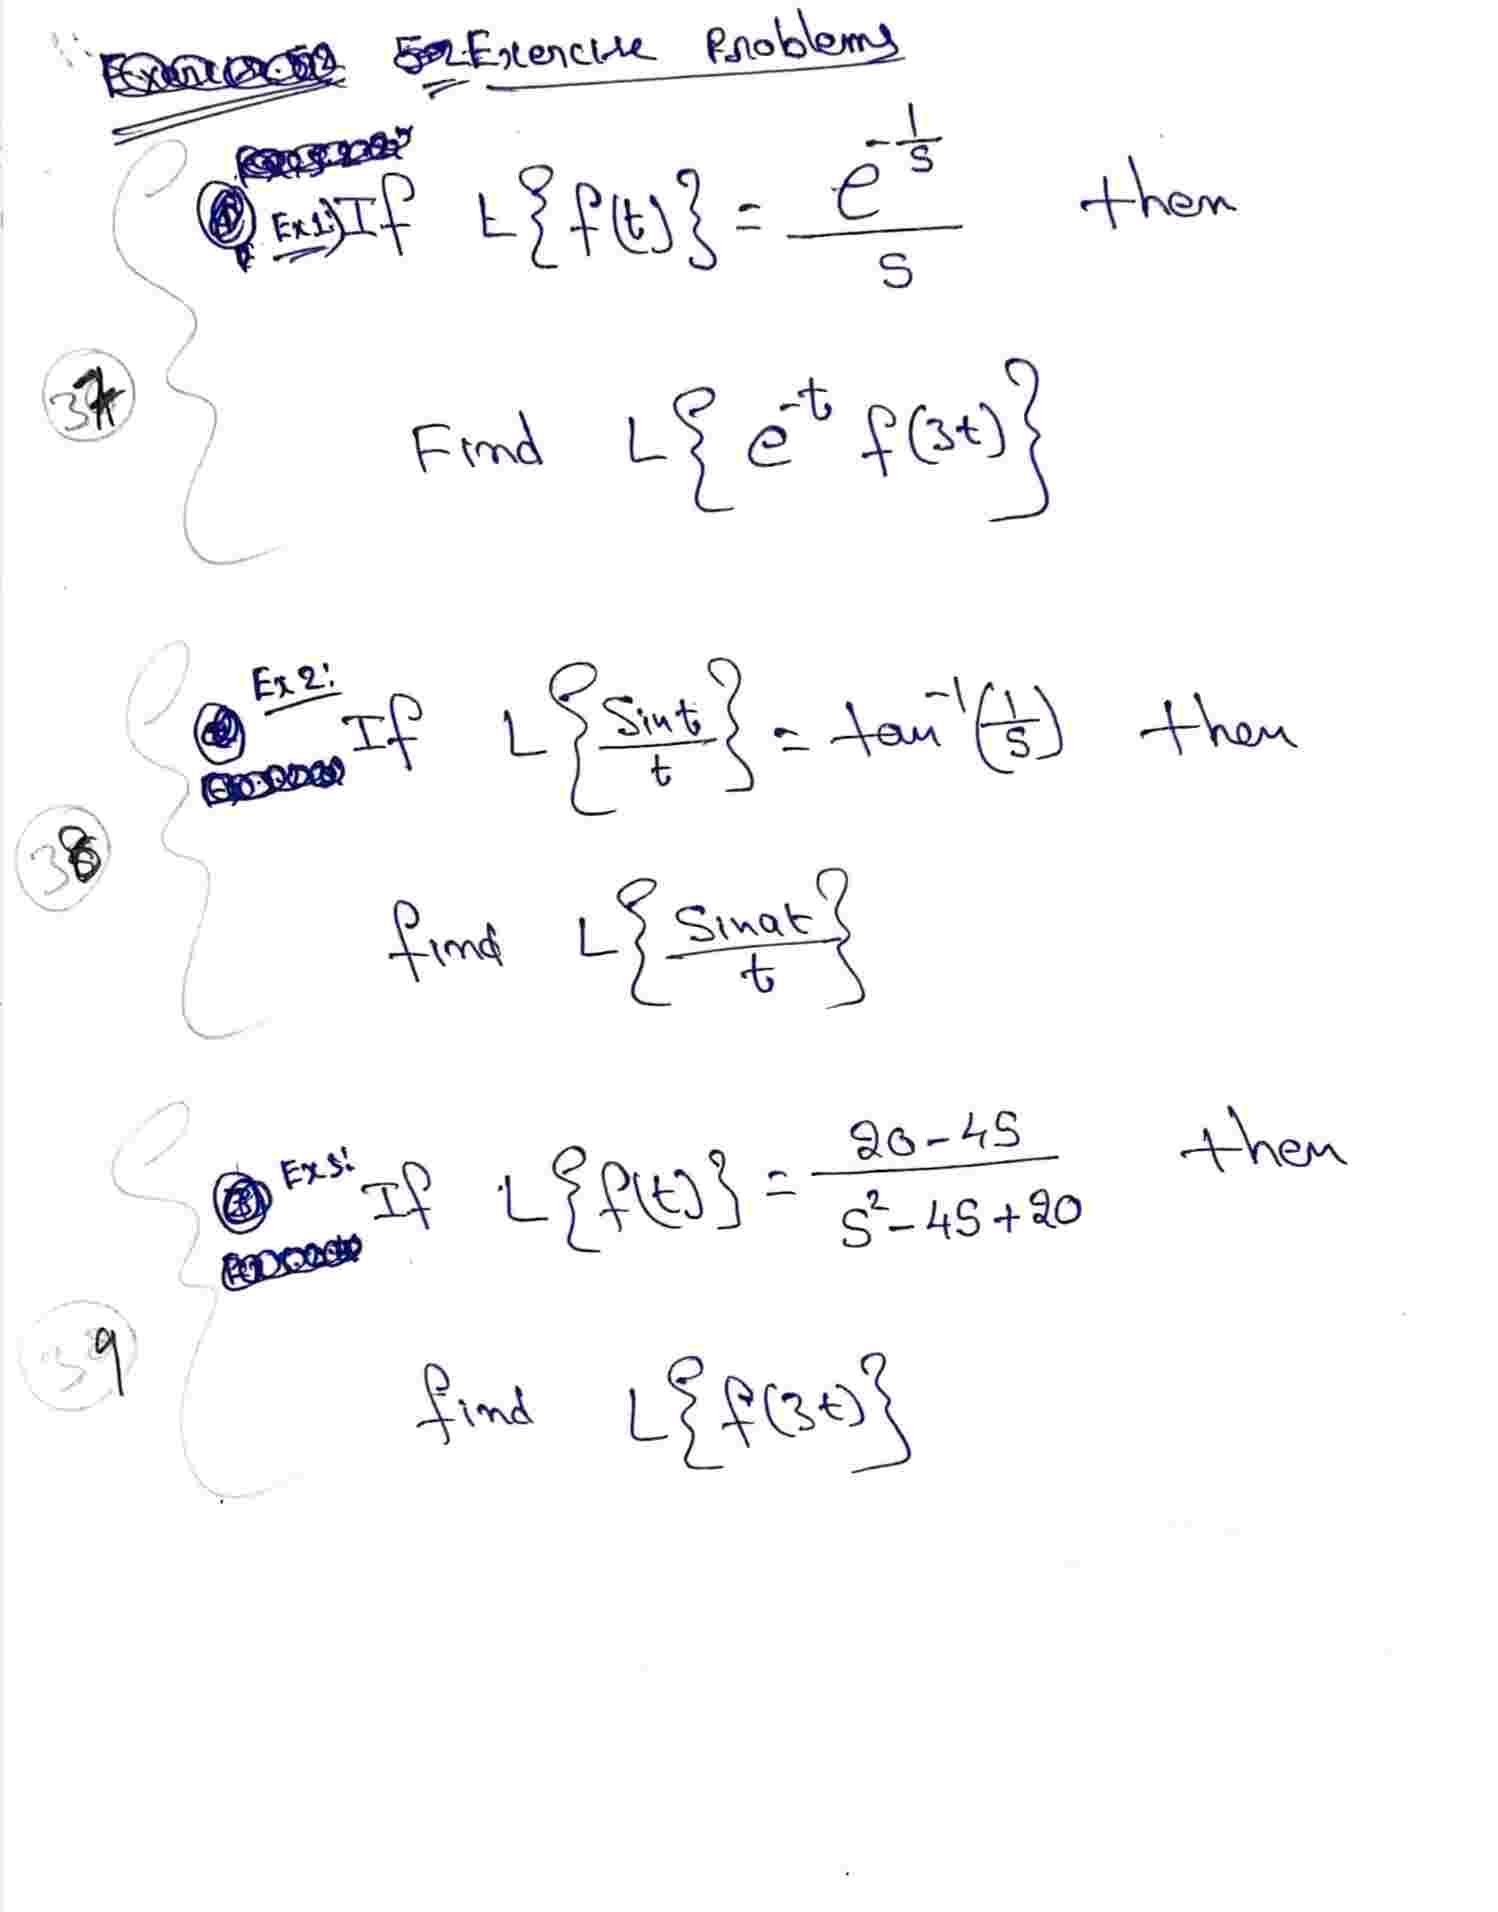 Exercise Problems
Ex1:) If L{f(t)} = e^(-1/s) / s then
37
Find L{e^-t f(3t)}
Ex2: If L{Sint / t} = tan^-1(1/s) then
38
find L{Sinat / t}
Ex3: If L{f(t)} = (20-4S) / (S^2-4S+20) then
39
find L{f(3t)}